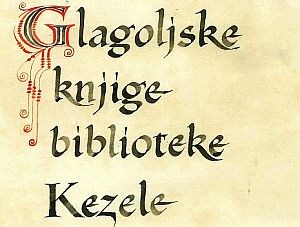 Glagoljske
knjige
biblioteke
Kezele